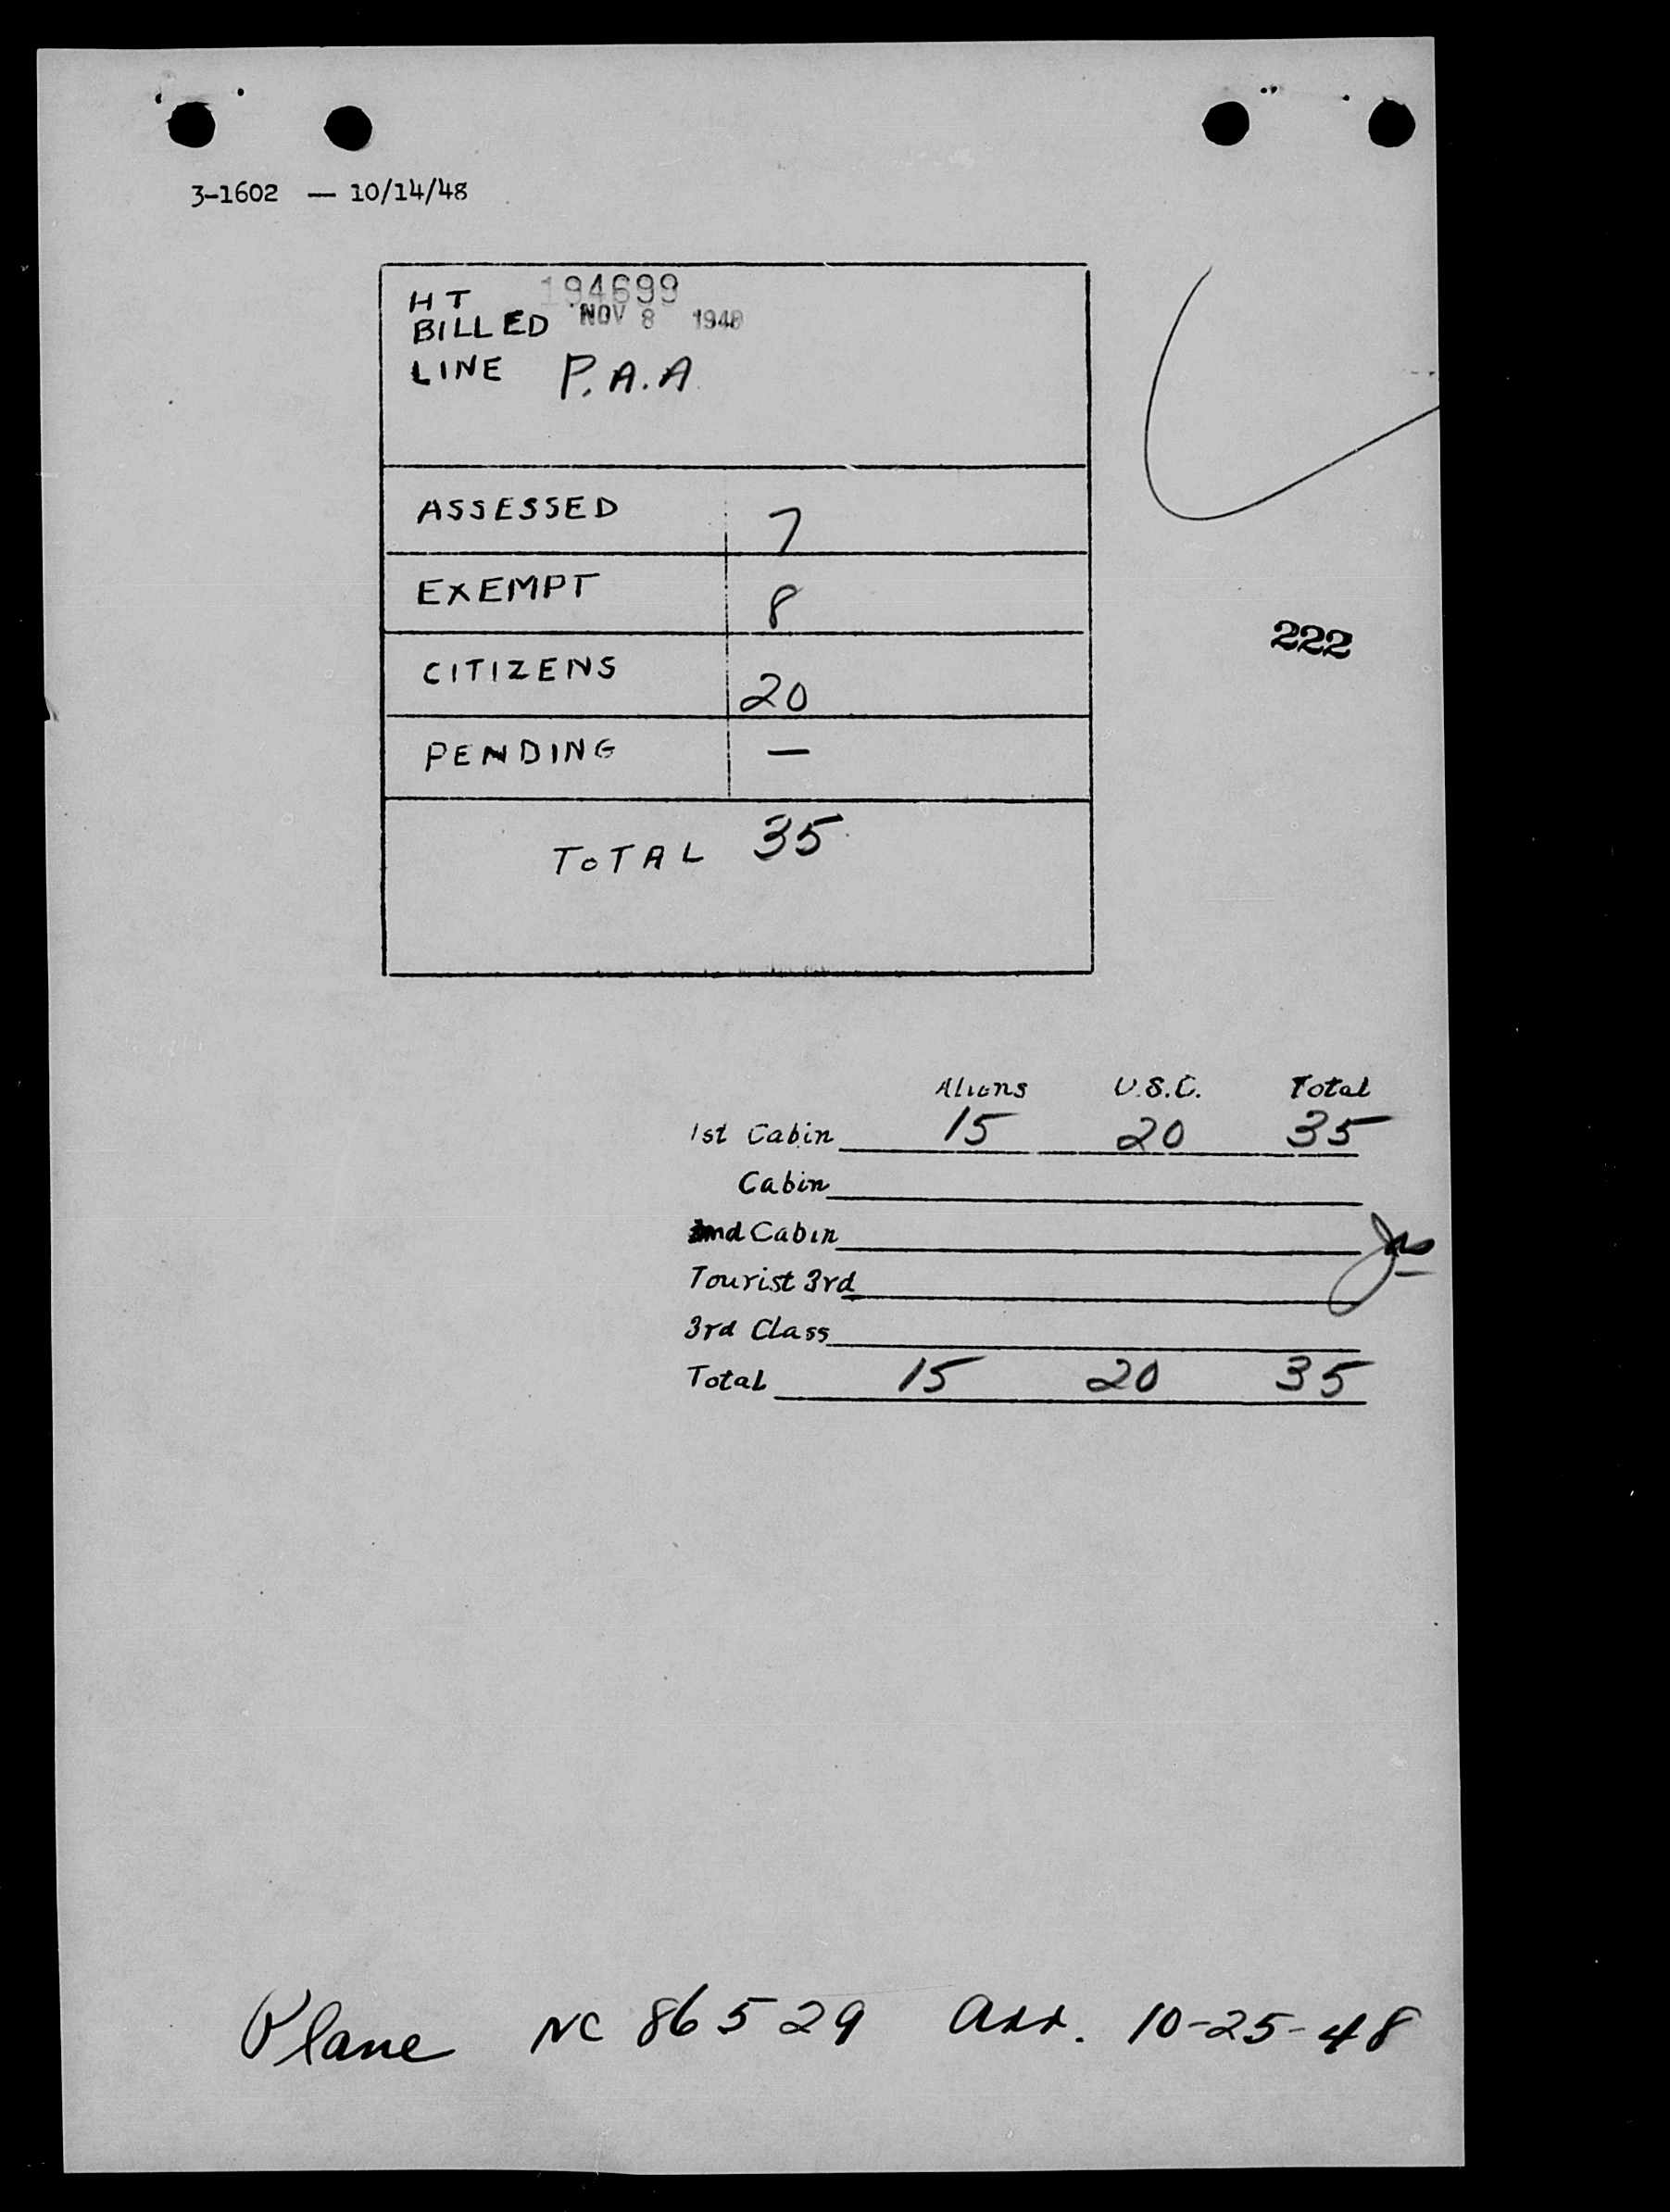 3-1602 — 10/14/48
HT 194699
BILLED NOV 8 1948
LINE P.A.A.
ASSESSED 7
EXEMPT 8
222
CITIZENS 20
PENDING —
TOTAL 35
Aliens U.S.C. Total
1st Cabin 15 20 35
Cabin
2nd Cabin
Tourist 3rd
3rd Class
Total 15 20 35
Plane NC 86529 Arr. 10-25-48